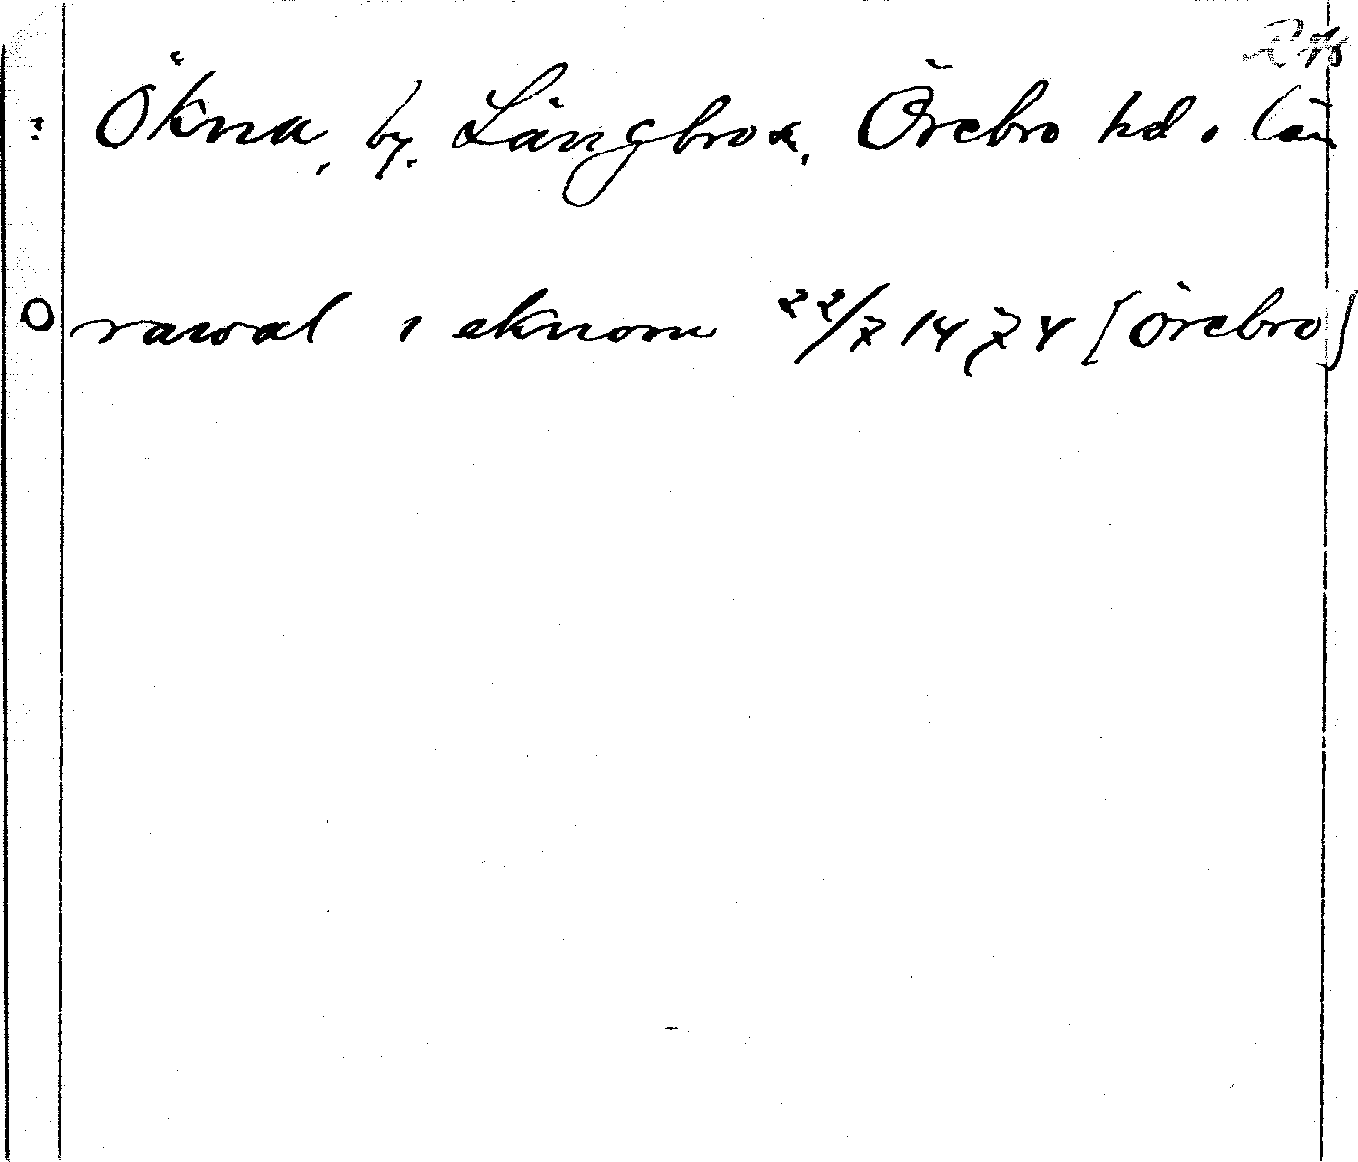 Ökna, by. Längbro sn, Örebro hd o. län
rawal i eknom 22/7 1474 [Örebro]